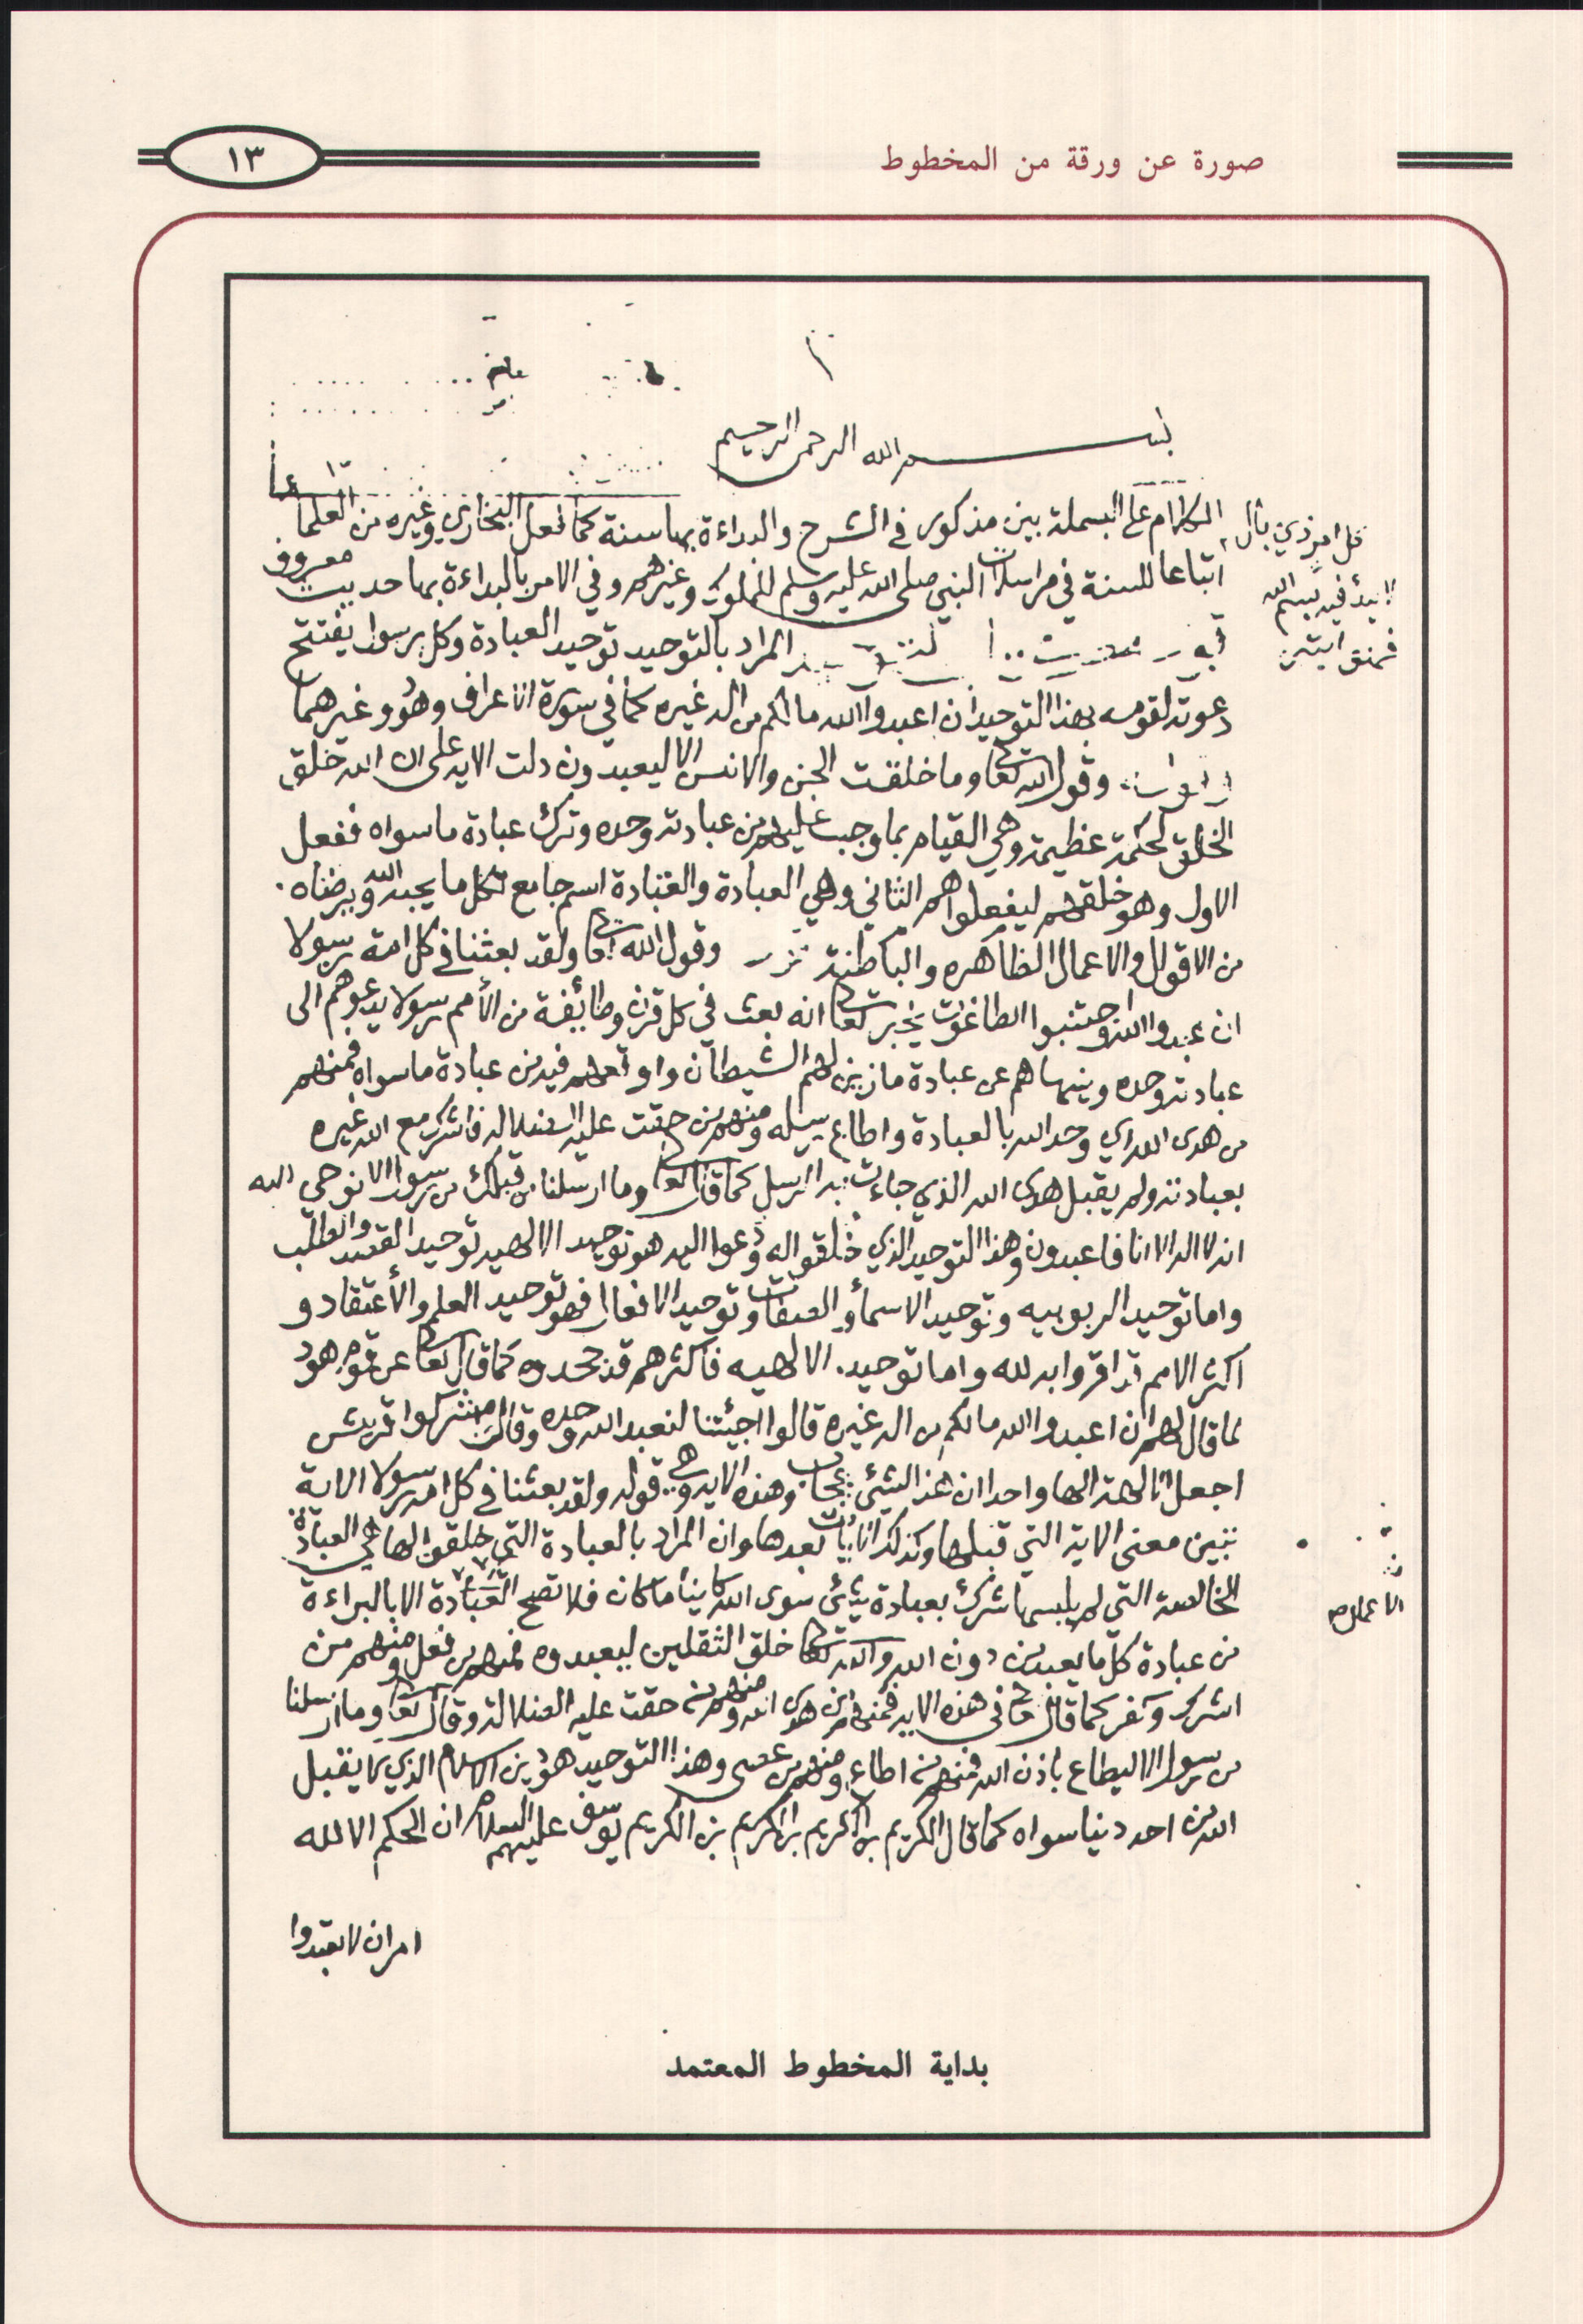 صورة عن ورقة من المخطوط
١٣
بسم الله الرحمن الرحيم
الكلام على البسملة بين مذكور في الشرح والبداءة بها سنة كما فعل البخاري وغيره من العلما
اتباعا للسنة في مراسلات النبي صلى الله عليه وسلم للملوك وغيرهم وفي الامر بالبداءة بها حديث معروف
كل امر ذي بال
لا يبدأ فيه ببسم الله
المراد بالتوحيد توحيد العبادة وكل رسول يفتتح
دعوته لقومه بهذا التوحيد ان اعبدوا الله ما لكم من اله غيره كما في سورة الاعراف وهود وغيرهما
وقول الله تعالى وما خلقت الجن والانس الا ليعبدون دلت الايه على ان الله خلق
الخلق لحكمة عظيمة وهي القيام بما وجب عليهم من عبادته وحده وترك عبادة ما سواه ففعل
الاول وهو خلقهم ليفعلوا هم الثاني وهي العبادة والعبادة اسم جامع لكل ما يحبه الله ويرضاه
من الاقوال والاعمال الظاهره والباطنة وقول الله تعالى ولقد بعثنا في كل امة رسولا
ان عبدوا الله واجتنبوا الطاغوت يخبر تعالى انه بعث في كل قرن وطائفة من الأمم رسولا يدعوهم الى
عبادته وحده وينهاهم عن عبادة ما زين لهم الشيطان واوقعهم فيه من عبادة ما سواه فمنهم
من هدى الله اي وحد الله بالعبادة واطاع رسله ومنهم من حقت عليه الضلاله فاشرك مع الله غيره
بعبادته ولم يقبل هدى الله الذي جاءت به الرسل كما قال تعالى وما ارسلنا من قبلك من رسول الا نوحي اليه
انه لا اله الا انا فاعبدون وهذا التوحيد الذي خلقوا له ودعوا اليه هو توحيد الالهيه توحيد القصد والطلب
واما توحيد الربوبيه وتوحيد الاسمأ والصفات وتوحيد الافعال فهو توحيد العلم والأعتقاد و
اكثر الامم قد اقروا به لله واما توحيد الالهيه فأكثرهم قد جحدوه كما قال تعالى عن قوم هود
لما قال لهم ان اعبدوا الله ما لكم من اله غيره قالوا اجئتنا لنعبد الله وحده وقال مشركوا قريش
اجعل الالهة الها واحدا ان هذا لشئ عجاب وهذه الايه وهي قوله ولقد بعثنا في كل امه رسولا الاية
تبين معنى الاية التي قبلها وكذلك الايات بعدها وان المراد بالعبادة التي خلقوا لها هي العبادة
الخالصة التي لم يلبسها شرك بعبادة شئ سوى الله كاينا ما كان فلا تصح العبادة الا بالبراءة
من عبادة كل ما يعبد من دون الله والله تعالى خلق الثقلين ليعبدوه فمنهم من فعل ومنهم من
اشرك وكفر كما قال تعالى في هذه الايه فمنهم من هدى الله ومنهم من حقت عليه الضلالة وقال تعالى وما ارسلنا
من رسول الا ليطاع باذن الله فمنهم من اطاع ومنهم من عصى وهذا التوحيد هو دين الاسلام الذي لا يقبل
الله من احد دينا سواه كما قال الكريم بن الكريم بن الكريم بن الكريم يوسف عليهم السلام ان الحكم الا لله
امر ان لا تعبدوا
بداية المخطوط المعتمد